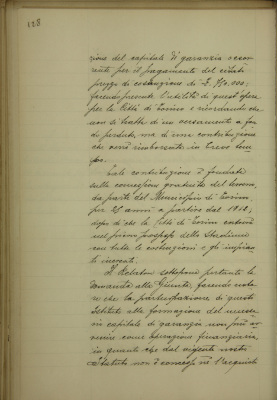 128
zione del capitale di garanzia occor-
rente per il pagamento del citato
prezzo di costruzione di L.
facendo presente l'utilità di quest'opera
per la Città di Torino e ricordando che
non si tratta di un versamento a fon-
do perduto, ma di una contribuzione
che verrà rimborsata in breve tem-
po.
Tale contribuzione è fondata
sulla concessione gratuita del terreno
da parte del Municipio di Torino
per 25 anni a partire dal 1912,
dopo di che la Città di Torino entrerà
nel pieno possesso dello Stadium
con tutte le costruzioni e gli impian-
ti inerenti.
Il Relatore sottopone pertanto la
domanda alla Giunta, facendo nota-
re che la partecipazione di questo
Istituto alla formazione del
capitale di garanzia non può av-
venire come operazione finanziaria,
in quanto che dal vigente nostro
Statuto non è concesso nè l'acquisto